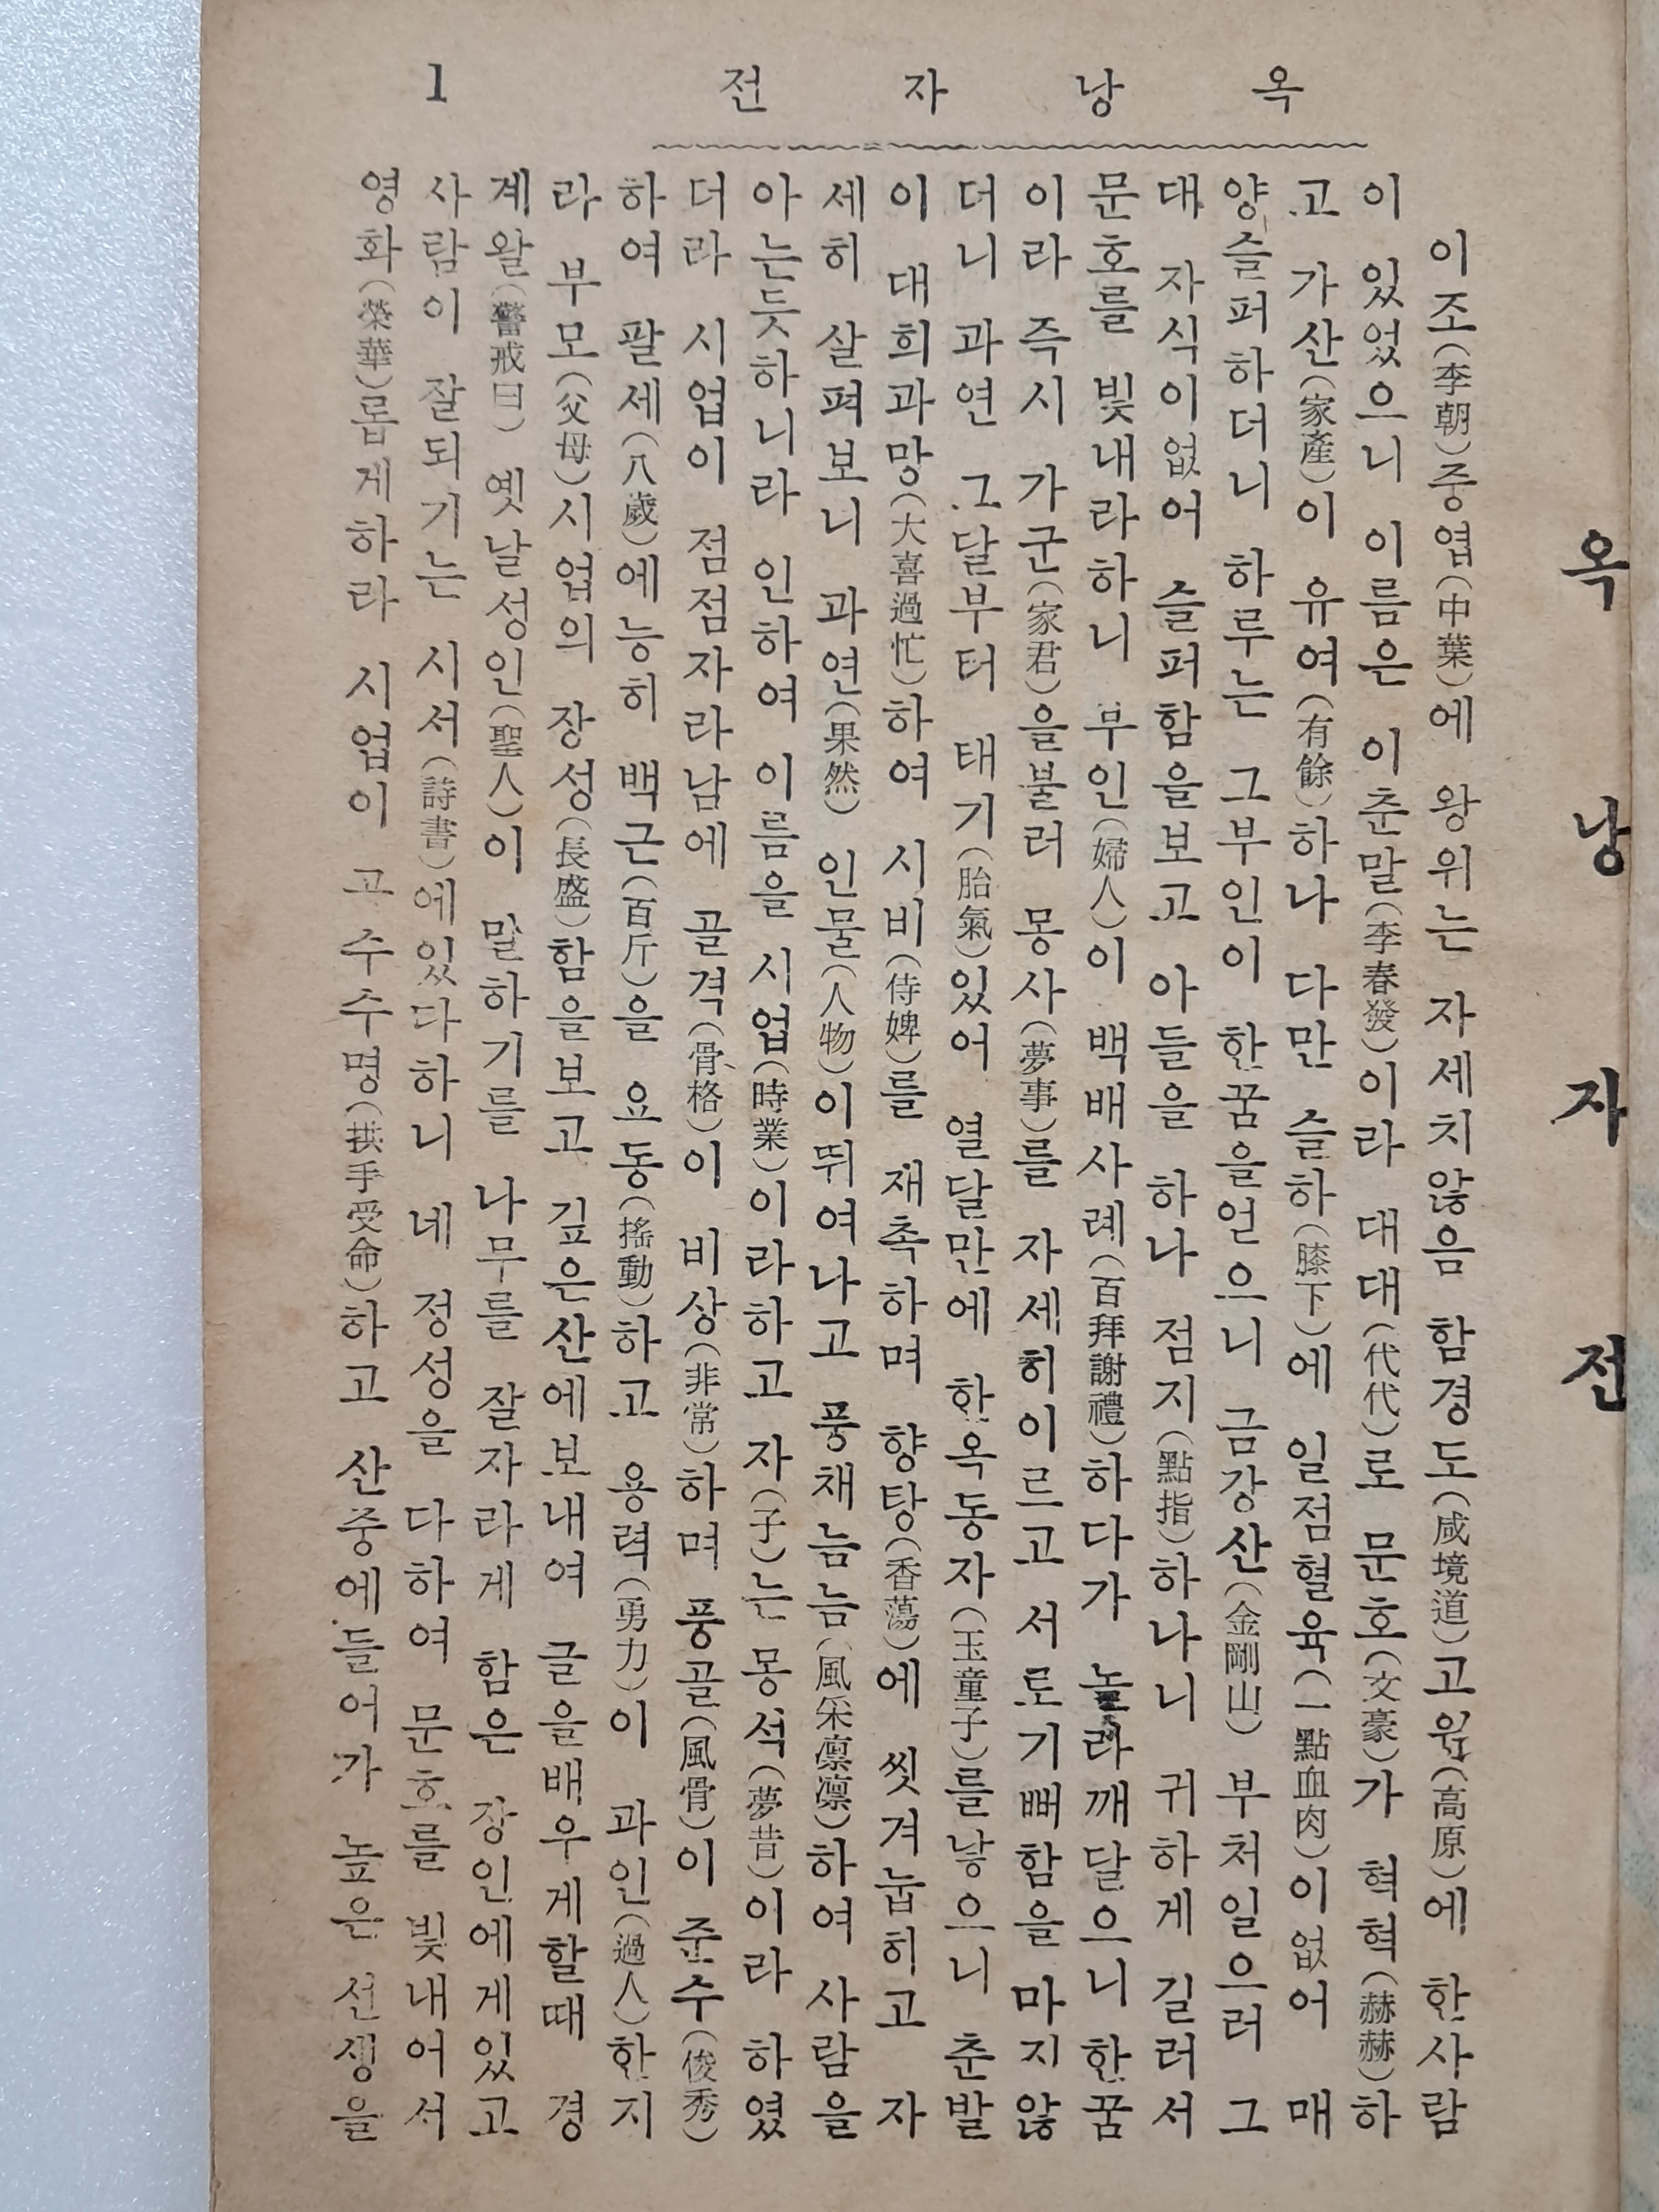 옥낭자전
1
옥낭자전
이조(李朝)중엽(中葉)에 왕위는 자세치않음 함경도(咸境道)고원(高原)에 한사람
이 있었으니 이름은 이춘말(李春發)이라 대대(代代)로 문호(文豪)가 혁혁(赫赫)하
고 가산(家產)이 유여(有餘)하나 다만 슬하(膝下)에 일점혈육(一點血肉)이없어 매
양슬퍼하더니 하루는 그부인이 한꿈을얻으니 금강산(金剛山) 부처일으러 그
대 자식이없어 슬퍼함을보고 아들을 하나 점지(點指)하나니 귀하게 길러서
문호를 빛내라하니 부인(婦人)이 백배사례(百拜謝禮)하다가 놀라깨달으니 한꿈
이라 즉시 가군(家君)을불러 몽사(夢事)를 자세히이르고 서로기뻐함을 마지않
더니 과연 그달부터 태기(胎氣)있어 열달만에 한옥동자(玉童子)를낳으니 춘발
이 대희과망(大喜過忙)하여 시비(侍婢)를 재촉하며 향탕(香蕩)에 씻겨눕히고 자
세히 살펴보니 과연(果然) 인물(人物)이뛰여나고 풍채늠늠(風采凛凛)하여 사람을
아는듯하니라 인하여 이름을 시업(時業)이라하고 자(子)는 몽석(夢昔)이라 하였
더라 시업이 점점자라남에 골격(骨格)이 비상(非常)하며 풍골(風骨)이 준수(俊秀)
하여 팔세(八歲)에능히 백근(百斤)을 요동(搖動)하고 용력(勇力)이 과인(過人)한지
라 부모(父母)시업의 장성(長盛)함을보고 깊은산에보내여 글을배우게할때 경
계왈(警戒曰) 옛날성인(聖人)이 말하기를 나무를 잘자라게 함은 장인에게있고
사람이 잘되기는 시서(詩書)에있다하니 네 정성을 다하여 문호를 빛내어서
영화(榮華)롭게하라 시업이 고수수명(拱手受命)하고 산중에들어가 높은선생을